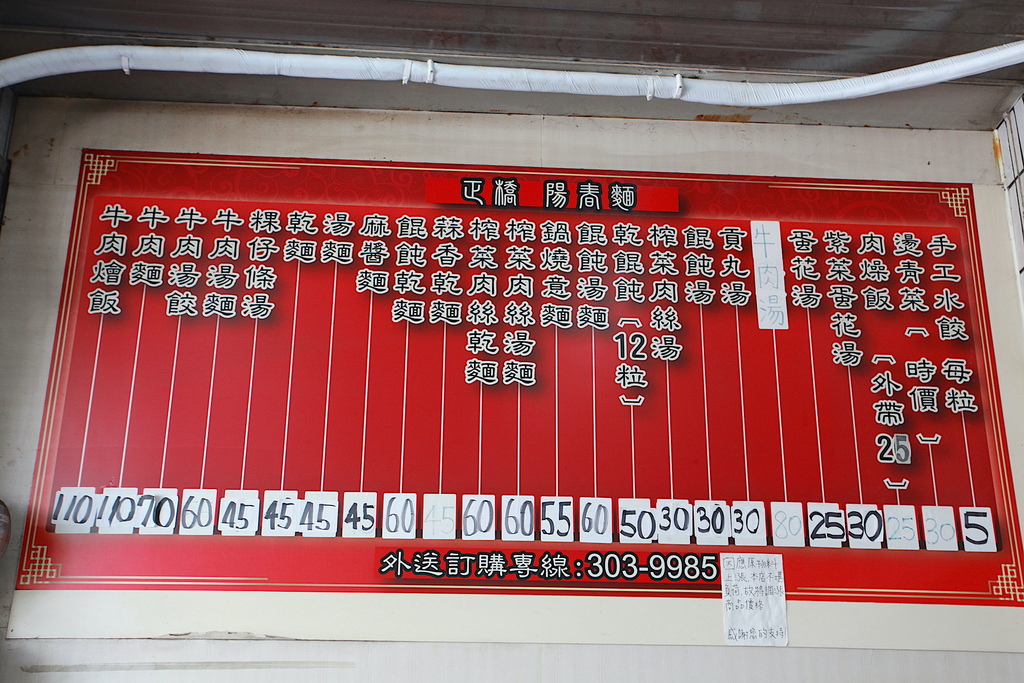 正橋 陽春麵
手工水餃 每粒 5
燙青菜（時價） 30
肉燥飯（外帶25） 25
紫菜蛋花湯 30
蛋花湯 25
牛肉湯 80
貢丸湯 30
餛飩湯 30
榨菜肉絲湯 30
乾餛飩（12粒） 50
餛飩湯麵 60
鍋燒意麵 55
榨菜肉絲湯麵 60
榨菜肉絲乾麵 60
蒜香乾麵 45
餛飩乾麵 60
麻醬麵 45
湯麵 45
乾麵 45
粿仔條湯 45
牛肉湯麵 60
牛肉湯餃 70
牛肉麵 110
牛肉燴飯 110
外送訂購專線:303-9985
因應原物料
上漲,本店不堪
負荷,故將調漲
商品價格
感謝您的支持